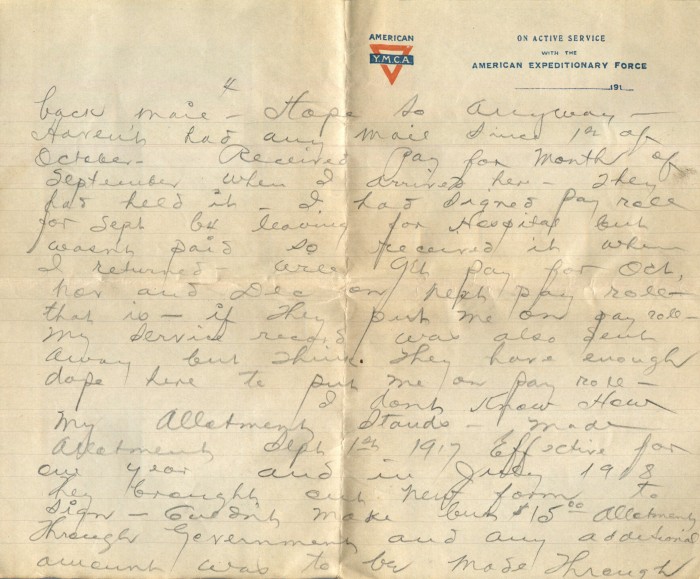 AMERICAN
Y.M.C.A.
ON ACTIVE SERVICE
WITH THE
AMERICAN EXPEDITIONARY FORCE
191
4
back mail - Hope so anyway -
Haven't had any mail since 1st of
October - Received Pay for Month of
September when I arrived here - They
had held it - I had signed pay role
for Sept b4 leaving for Hospital but
wasn't paid so received it when
I returned - will get pay for Oct,
Nov and Dec on next pay role -
that is - if they put me on pay role -
My service record was also sent
away but think they have enough
dope here to put me on pay role -
I dont Know How
My Allotment Stands - Made
Allotment Sept 1st 1917 Effective for
one year and in July 1918
they brought out new form to
sign - Couldn't make but $15.00 Allotment
Through Government and any additional
amount was to be made through